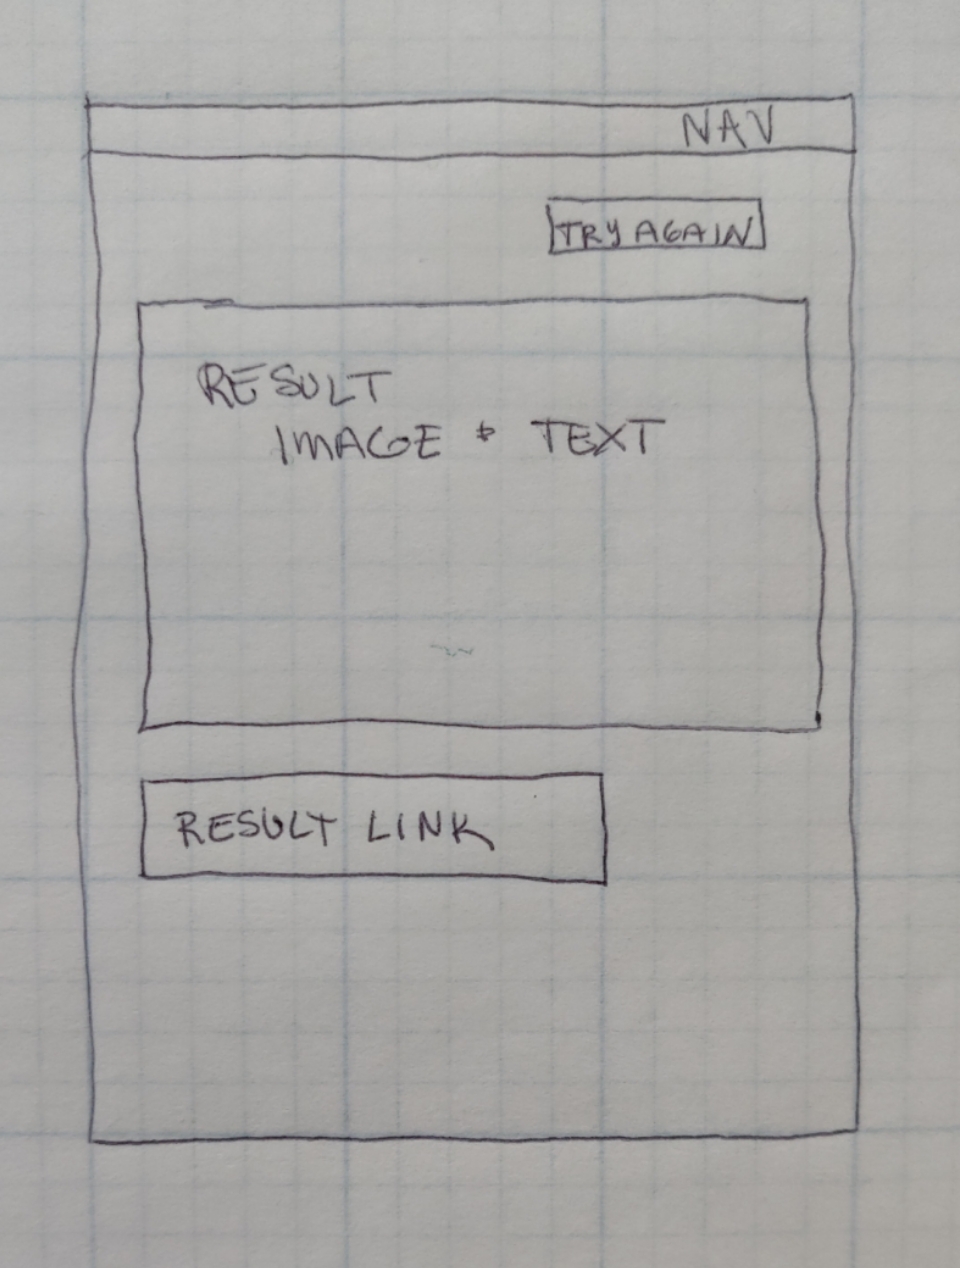 NAV
TRY AGAIN
RESULT
IMAGE & TEXT
RESULT LINK